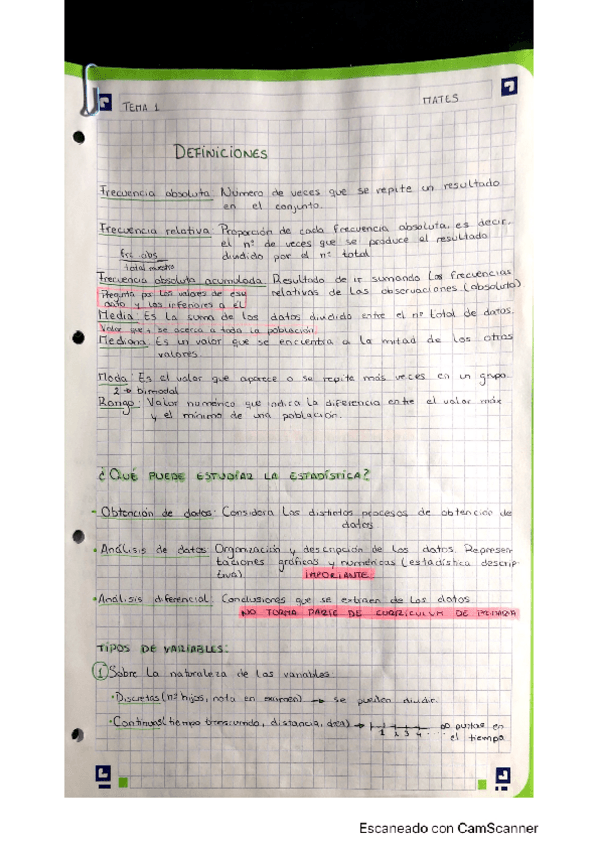 TEMA 1
MATES
DEFINICIONES
Frecuencia absoluta: Número de veces que se repite un resultado
en el conjunto.
Frecuencia relativa: Proporción de cada frecuencia absoluta, es decir,
el nº de veces que se produce el resultado
dividido por el nº total
frc abs
total muestra
Frecuencia absoluta acumulada: Resultado de ir sumando las frecuencias
relativas de las observaciones (absoluta)
Pregunta por los valores de ese
dato y los inferiores a él
Media: Es la suma de los datos dividido entre el nº total de datos.
Valor que + se acerca a toda la población.
Mediana: Es un valor que se encuentra a la mitad de los otros
valores.
Moda: Es el valor que aparece o se repite más veces en un grupo.
2 → bimodal
Rango: Valor numérico que indica la diferencia entre el valor máx
y el mínimo de una población.
¿QUÉ PUEDE ESTUDIAR LA ESTADÍSTICA?
- Obtención de datos: Considera los distintos procesos de obtención de
datos
• Análisis de datos: Organización y descripción de los datos. Represen-
taciones gráficas y numéricas (estadística descrip-
tiva) IMPORTANTE
• Análisis diferencial: Conclusiones que se extraen de los datos
NO FORMA PARTE DE CURRICULUM DE PRIMARIA
TIPOS DE VARIABLES:
1 Sobre la naturaleza de las variables
• Discretas (nº hijos, nota en examen) → se pueden dividir.
• Continuas (tiempo transcurrido, distancia, área) → 1 2 3 4 ... ∞ puntos en
el tiempo
Escaneado con CamScanner